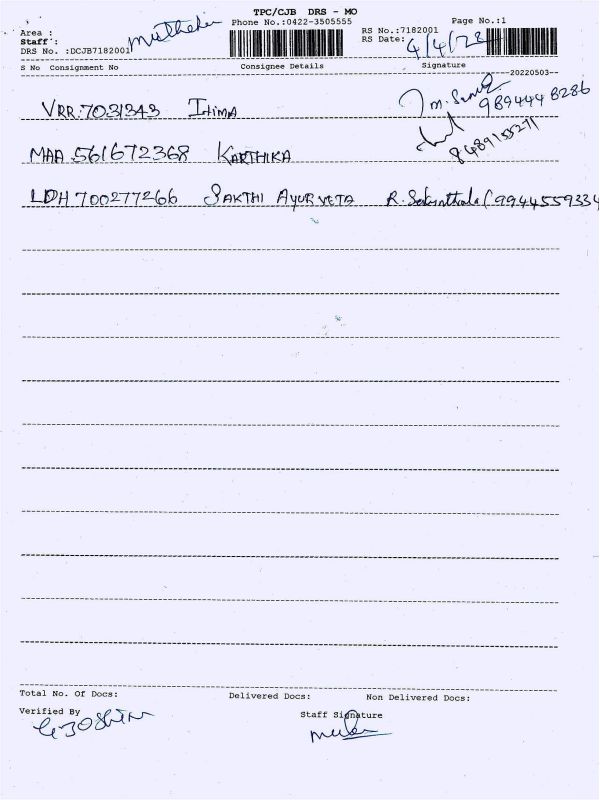 TPC/CJB DRS - MO
Phone No.:0422-3505555
Page No.:1
Area :
Staff :
DRS No. :DCJB7182001
RS No.:7182001
RS Date: 4/4/
S No Consignment No Consignee Details Signature
20220503
VRR 7031343
MAA 561672368 KARTHIKA
8489155271
LDH 700277266 SAKTHI AYURVETA
Total No. Of Docs: Delivered Docs: Non Delivered Docs:
Verified By Staff Signature